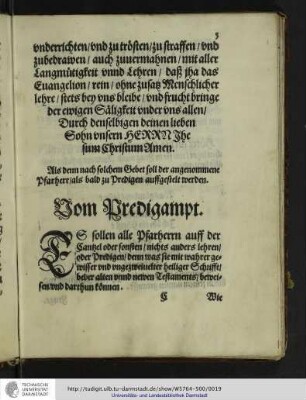 3
vnderrichten/vnd zu trösten/zu straffen/ vnd
zubedrawen / auch zuuermahnen / mit aller
Langmütigkeit vnnd Lehren / daß jha das
Euangelion / rein / ohne zusatz Menschlicher
lehre / stets bey vns bleibe / vnd frucht bringe
der ewigen Säligkeit vnder vns allen /
Durch denselbigen deinen lieben
Sohn vnsern HERRN Jhe
sum Christum Amen.
Als denn nach solchem Gebet soll der angenommene
Pfarherr / als bald zu Predigen auffgestelt werden.
Vom Predigampt.
ES sollen alle Pfarherrn auff der
Cantzel oder sonsten / nichts anders lehren /
oder Predigen / denn was sie mit wahrer ge-
wisser vnd vngezweiuelter heiliger Schrifft /
beder alten vnnd newen Testaments / bewei-
sen vnd darthun können.
C Wie
TECHNISCHE
UNIVERSITÄT
DARMSTADT
http://tudigit.ulb.tu-darmstadt.de/show/W3764-500/0019
Universitäts- und Landesbibliothek Darmstadt